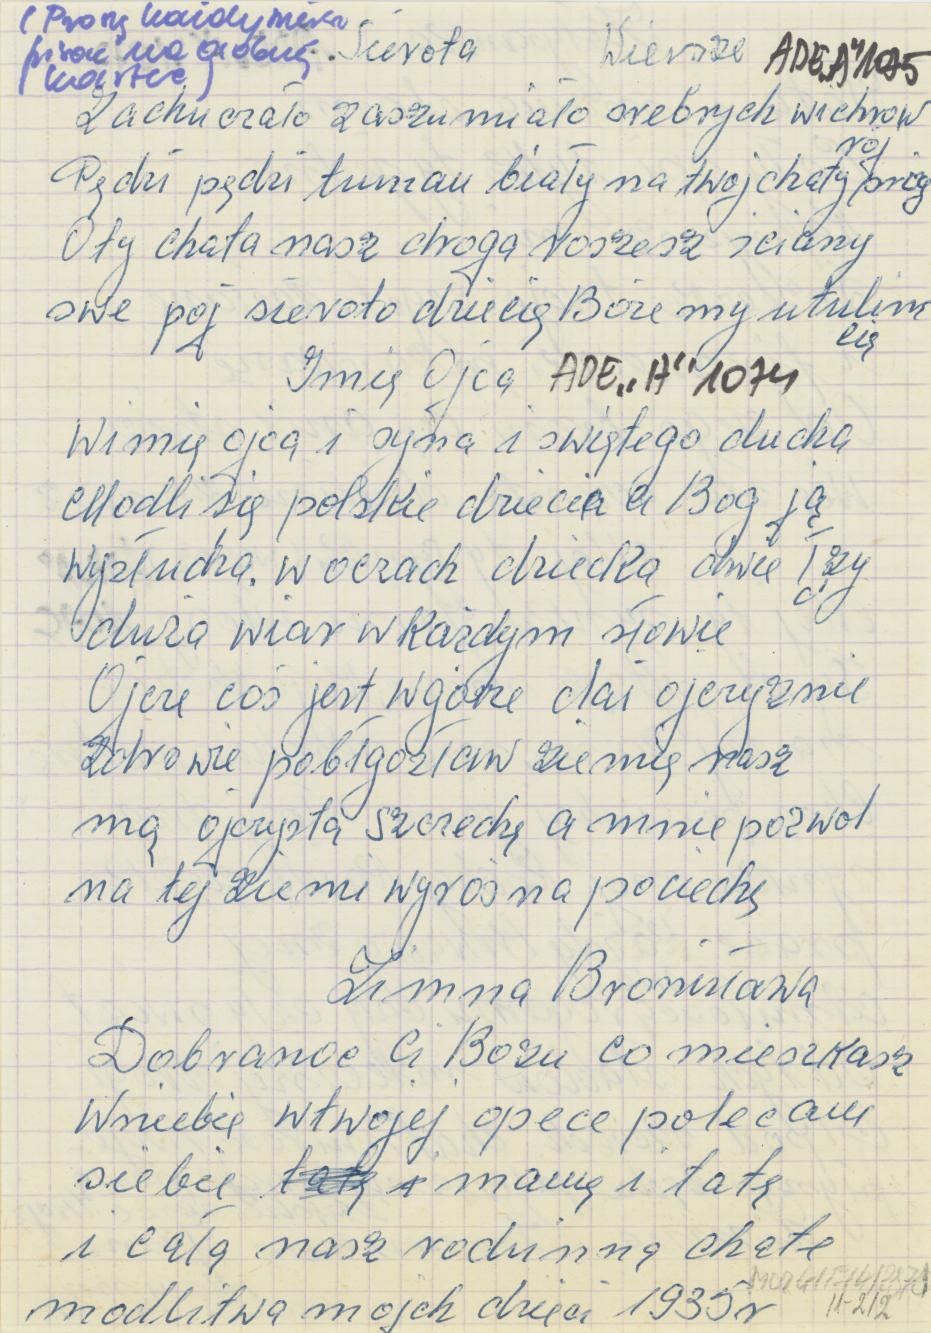 (Proszę każdy wiersz
pisać na osobnej
kartce)
Sierota Wiersze ADE„A"1075
Zachuczało zaszumiało srebrych wichrow
roj
Pędzi pędzi tuman biały na twoj chaty prog
Oty chata nasz droga roszesz ściany
swe pój sieroto dziecię Boże my utulim
cię
Imię Ojca ADE„A"1074
Wimię ojca i syna i swiętego ducha
Modli się polskie dziecia a Bog ją
wyzłucha. w oczach dziecka dwie łzy
duża wiar w każdym słowie
Ojcze coś jest wgórze dai ojczyznie
Zdrowie pobłgozław ziemię nasz
mą ojczystą szczechę a mnie pozwol
na tej ziemi wyroś na pociechę
Zimna Bronisława
Dobranoc Ci Bozu co mieszkasz
Wniebie wtwojej opece polecam
siebie mamę i tatę
i całą nasz rodzinną chate
modlitwa mojch dzieci 1935r
II-2/2